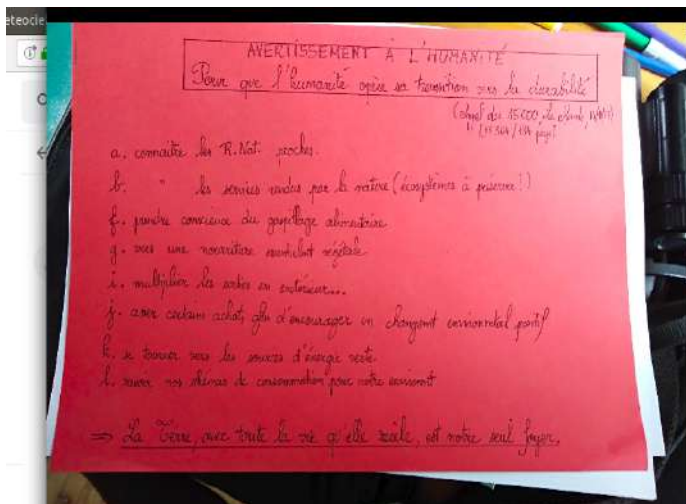 eteocie
AVERTISSEMENT À L'HUMANITÉ
Pour que l'humanité opère sa transition vers la durabilité
(appel des 15000, Le Monde,
a. connaître les R. Nat. proches.
b. " les services rendus par la nature (écosystèmes à préserver !)
f. prendre conscience du gaspillage alimentaire
g. vers une nourriture végétale
i. multiplier les sorties en extérieur...
j. avec certains achats, afin d'encourager un changemt environnetal positif
k. se tourner vers les sources d'énergie verte
l. revoir nos shémas de consommation pour notre environt
⇒ La Terre, avec toute la vie qu'elle recèle, est notre seul foyer.